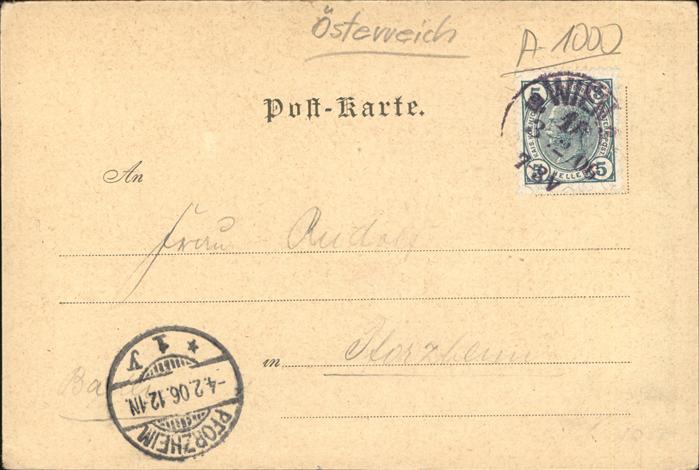 Österreich
A-1000
Post-Karte.
5 5
WIEN
7-8V
HELLER
5 5
An
Frau Rudolf
in Pforzheim
Baden
* 1 y
-4.2.06.12-1N.
PFORZHEIM